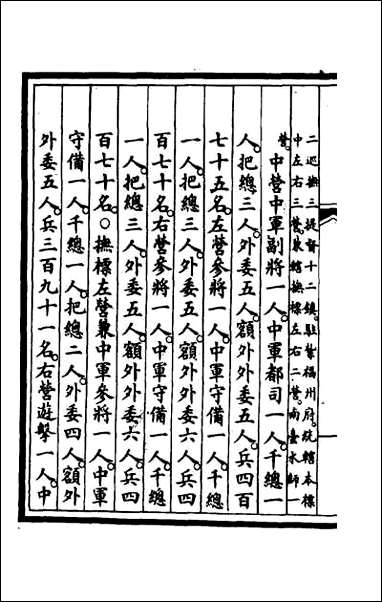 二巡撫三提督十二鎮駐劄福州府統轄本標
中左右三營兼轄撫標左右二營南臺水師一
營中營中軍副將一人中軍都司一人千總一
人把總三人外委五人額外外委五人兵四百
七十五名左營參將一人中軍守備一人千總
一人把總三人外委五人額外外委六人兵四
百七十名右營參將一人中軍守備一人千總
一人把總三人外委五人額外外委六人兵四
百七十名〇撫標左營兼中軍參將一人中軍
守備一人千總一人把總二人外委四人額外
外委五人兵三百九十一名右營遊擊一人中